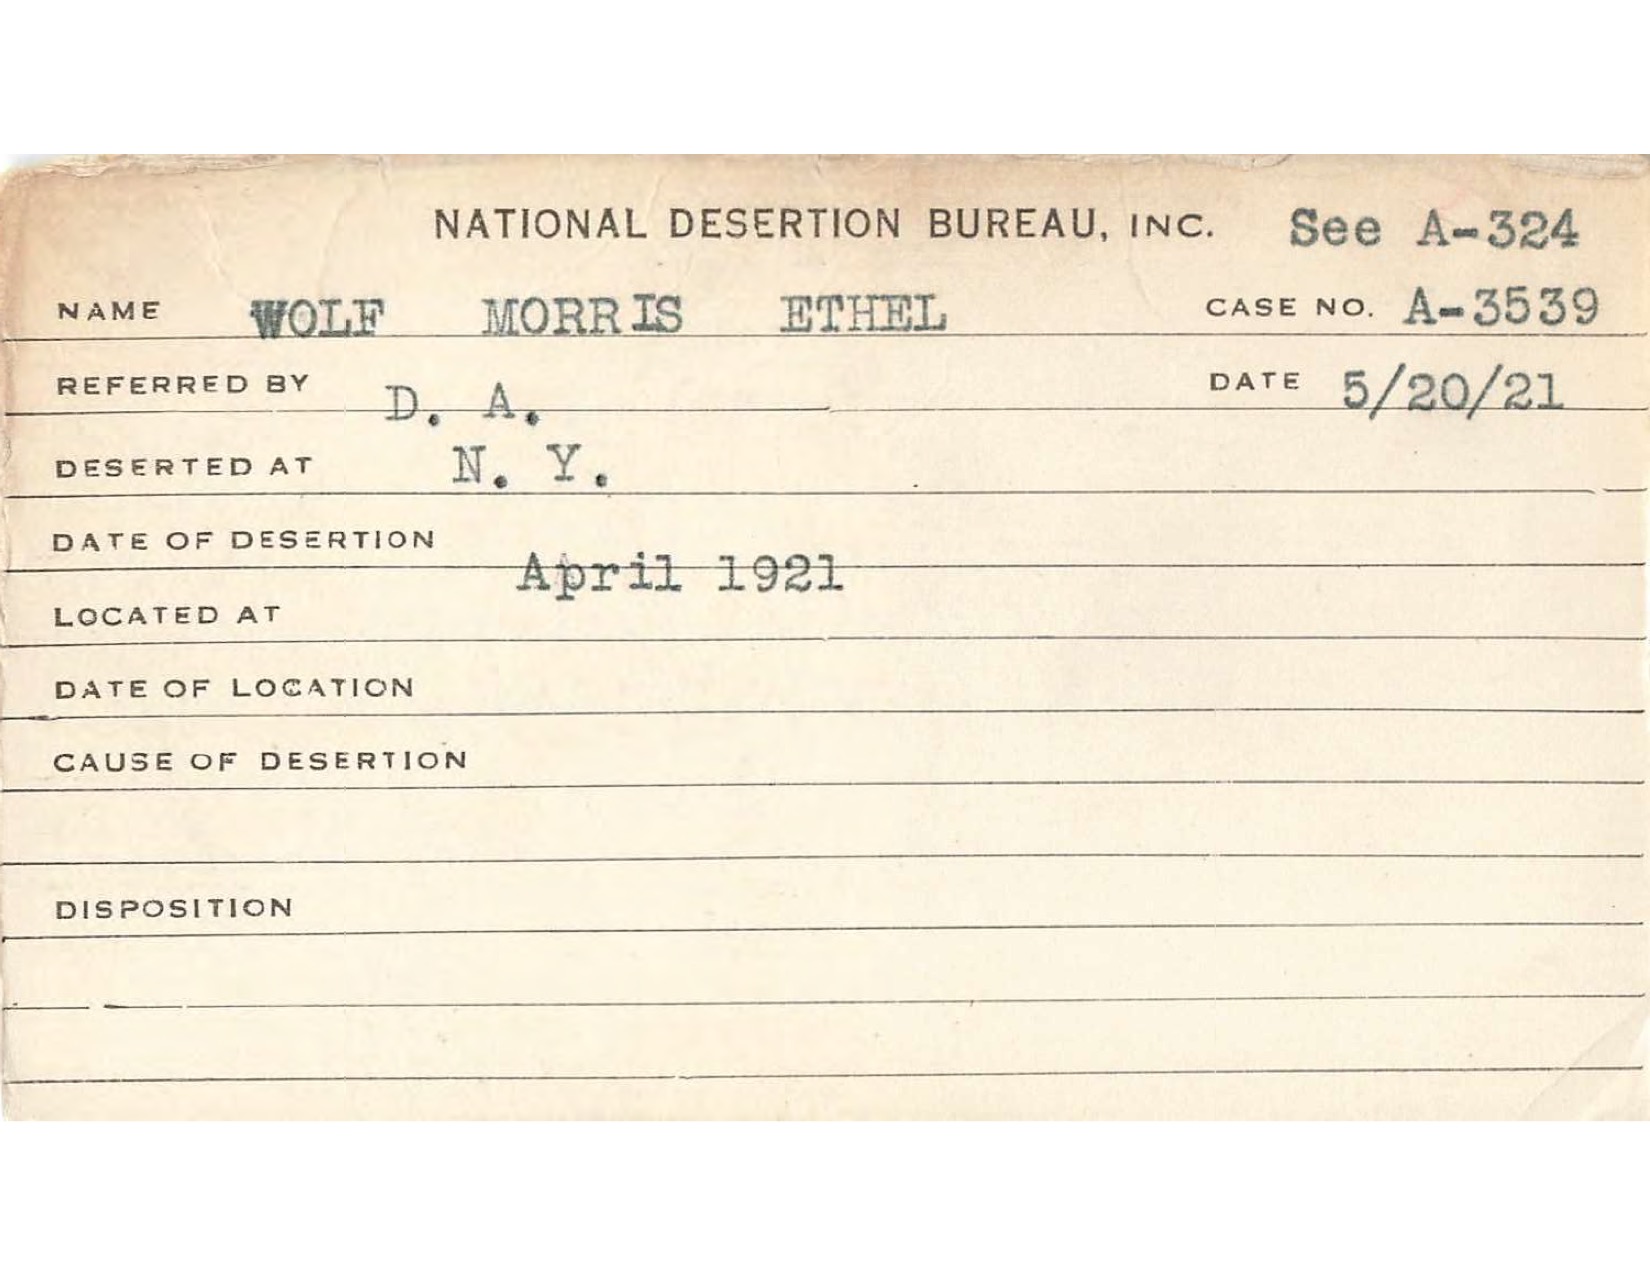 NATIONAL DESERTION BUREAU, INC. See A-324
NAME WOLF MORRIS ETHEL CASE NO. A-3539
REFERRED BY D. A. DATE 5/20/21
DESERTED AT N. Y.
DATE OF DESERTION April 1921
LOCATED AT
DATE OF LOCATION
CAUSE OF DESERTION
DISPOSITION